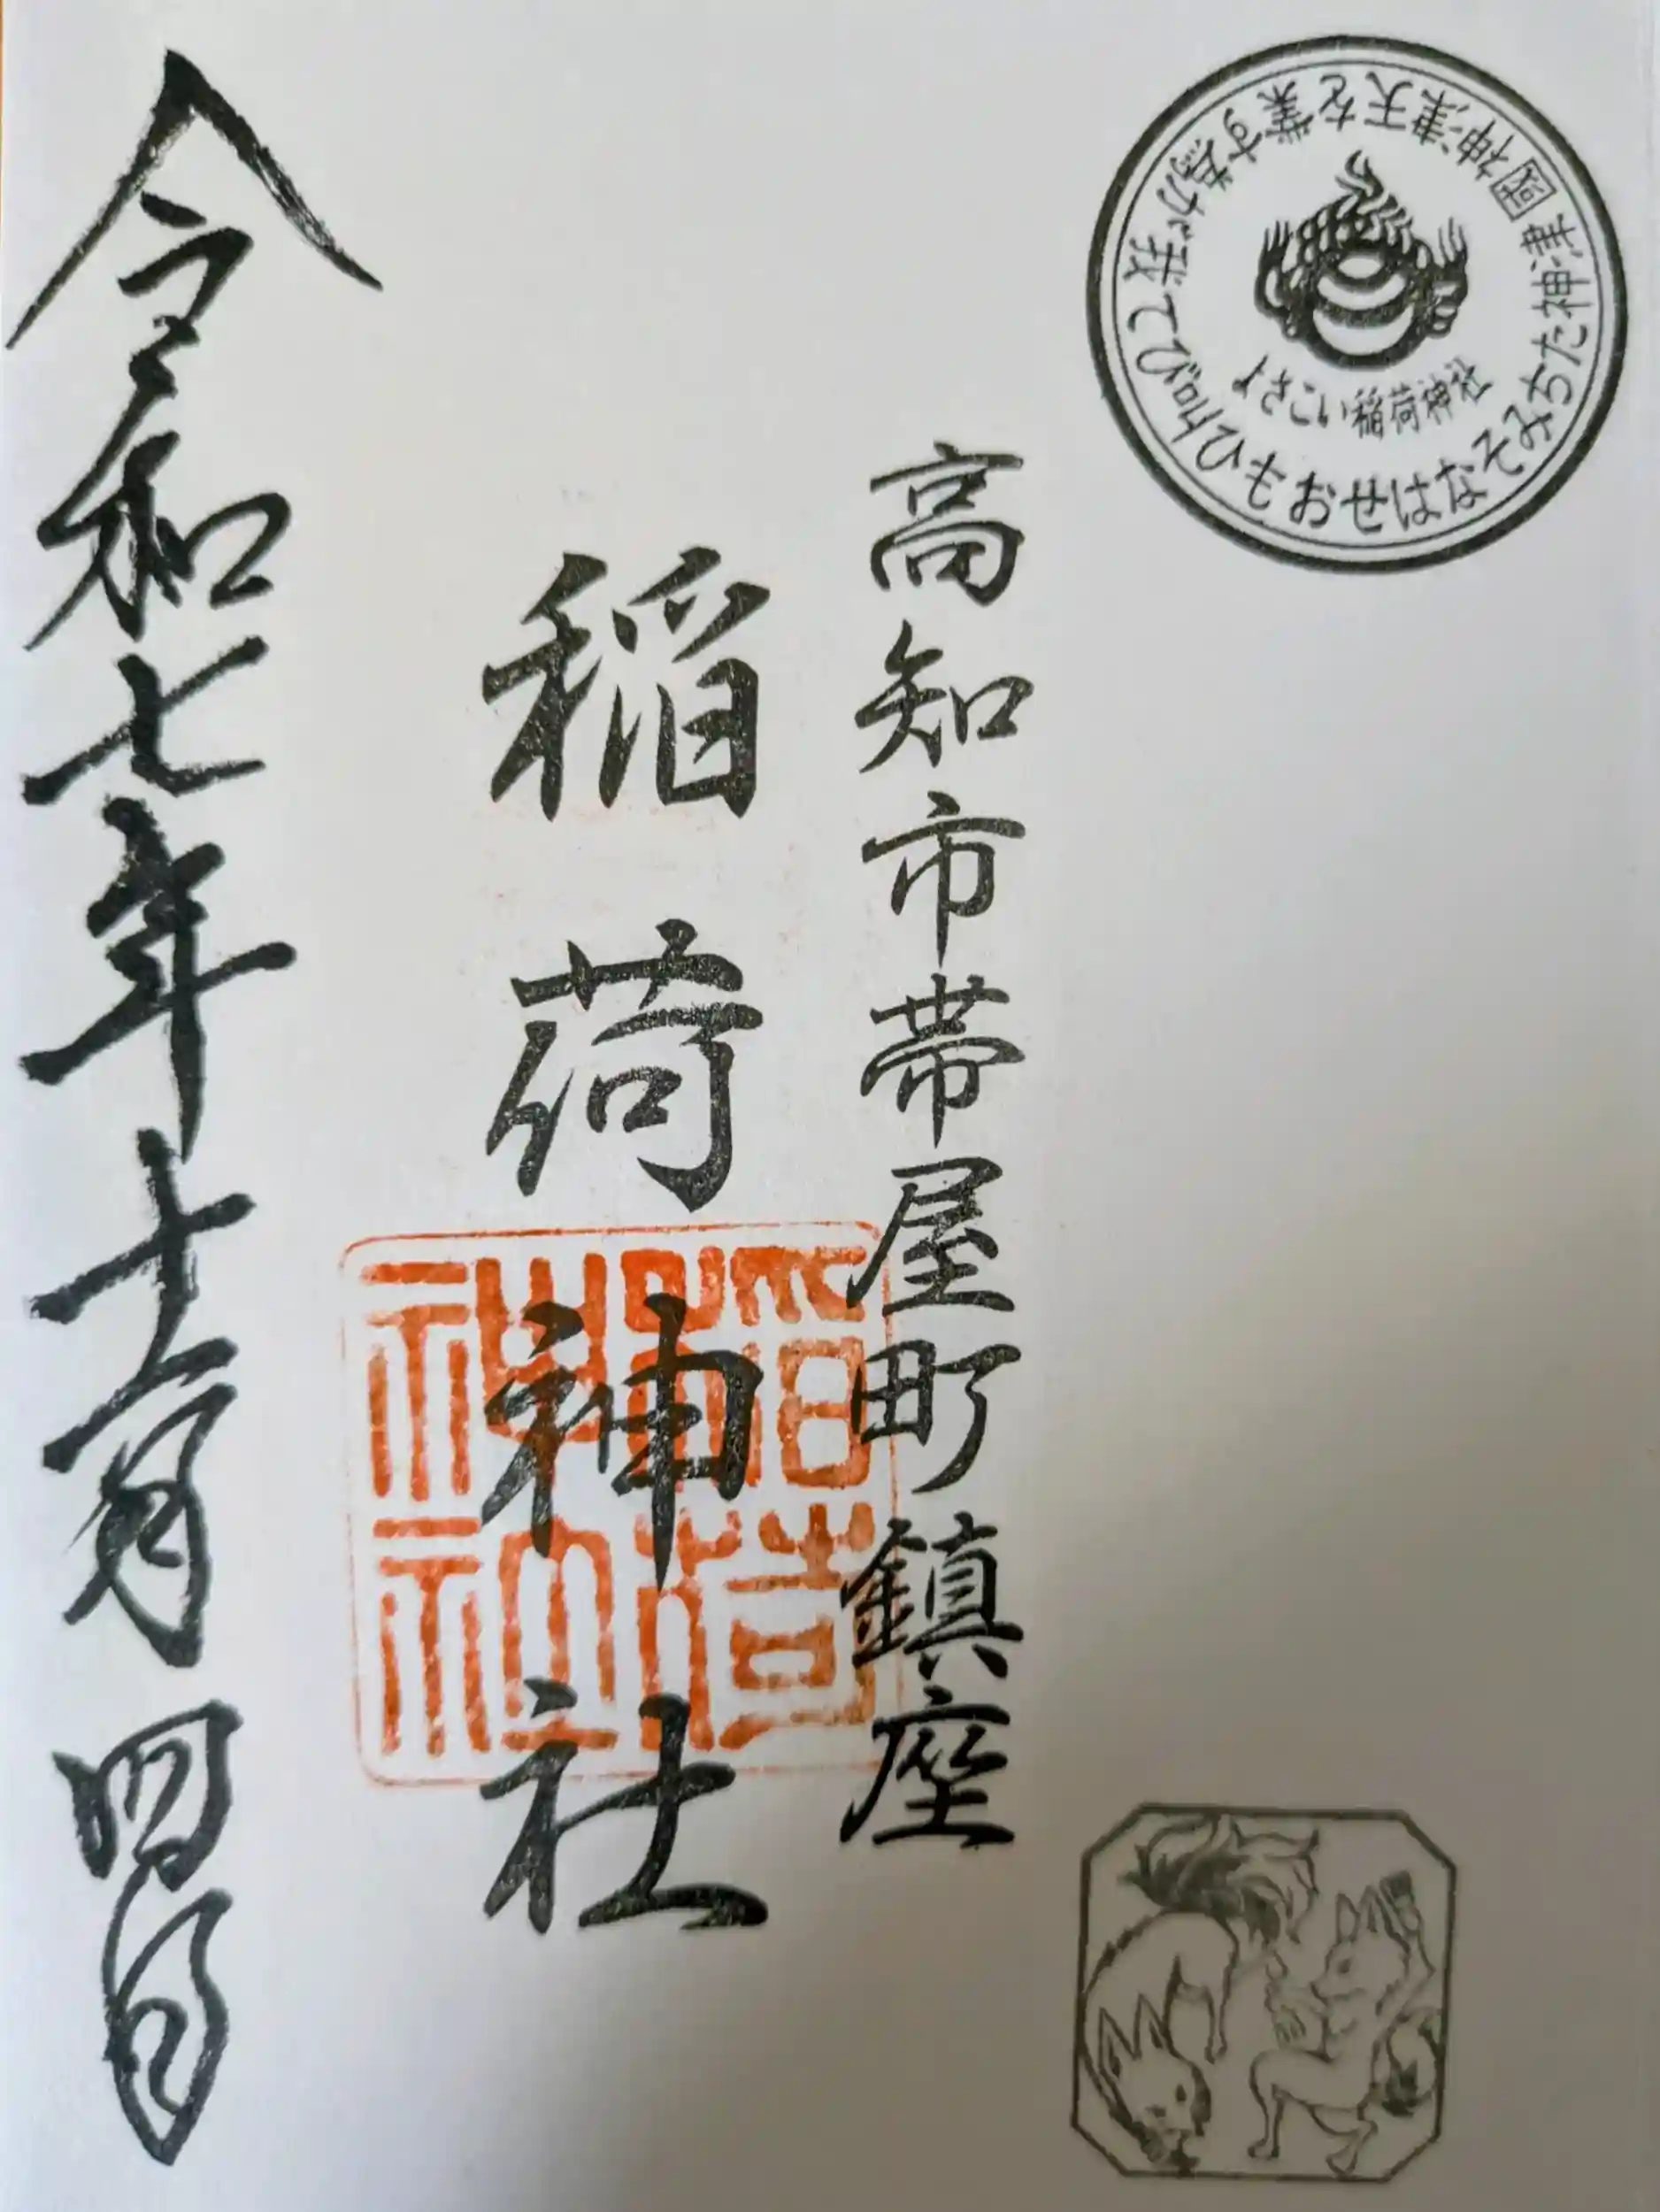 我が為す業を天津神國津神たちみそなはせおもひ叶びて
よさこい稲荷神社
高知市帯屋町鎮座
稲荷神社
稲荷神社
令和七年十一月四日